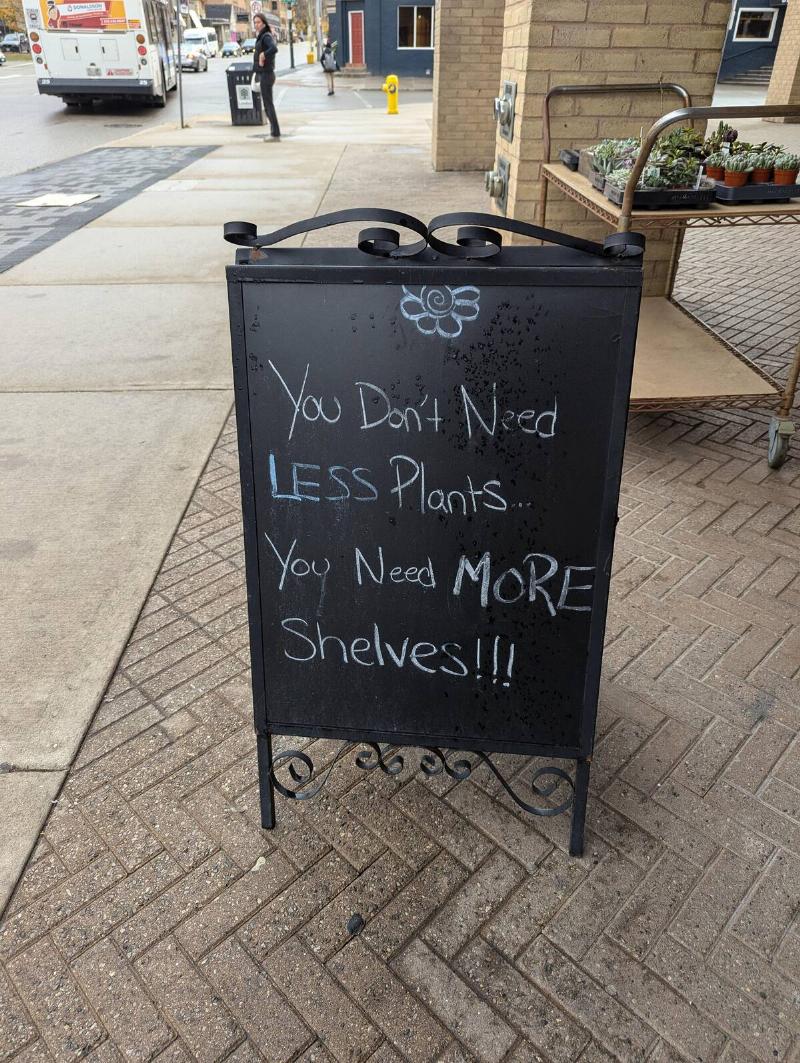 You Don't Need
LESS Plants...
You Need MORE
Shelves!!!
DONALDSON